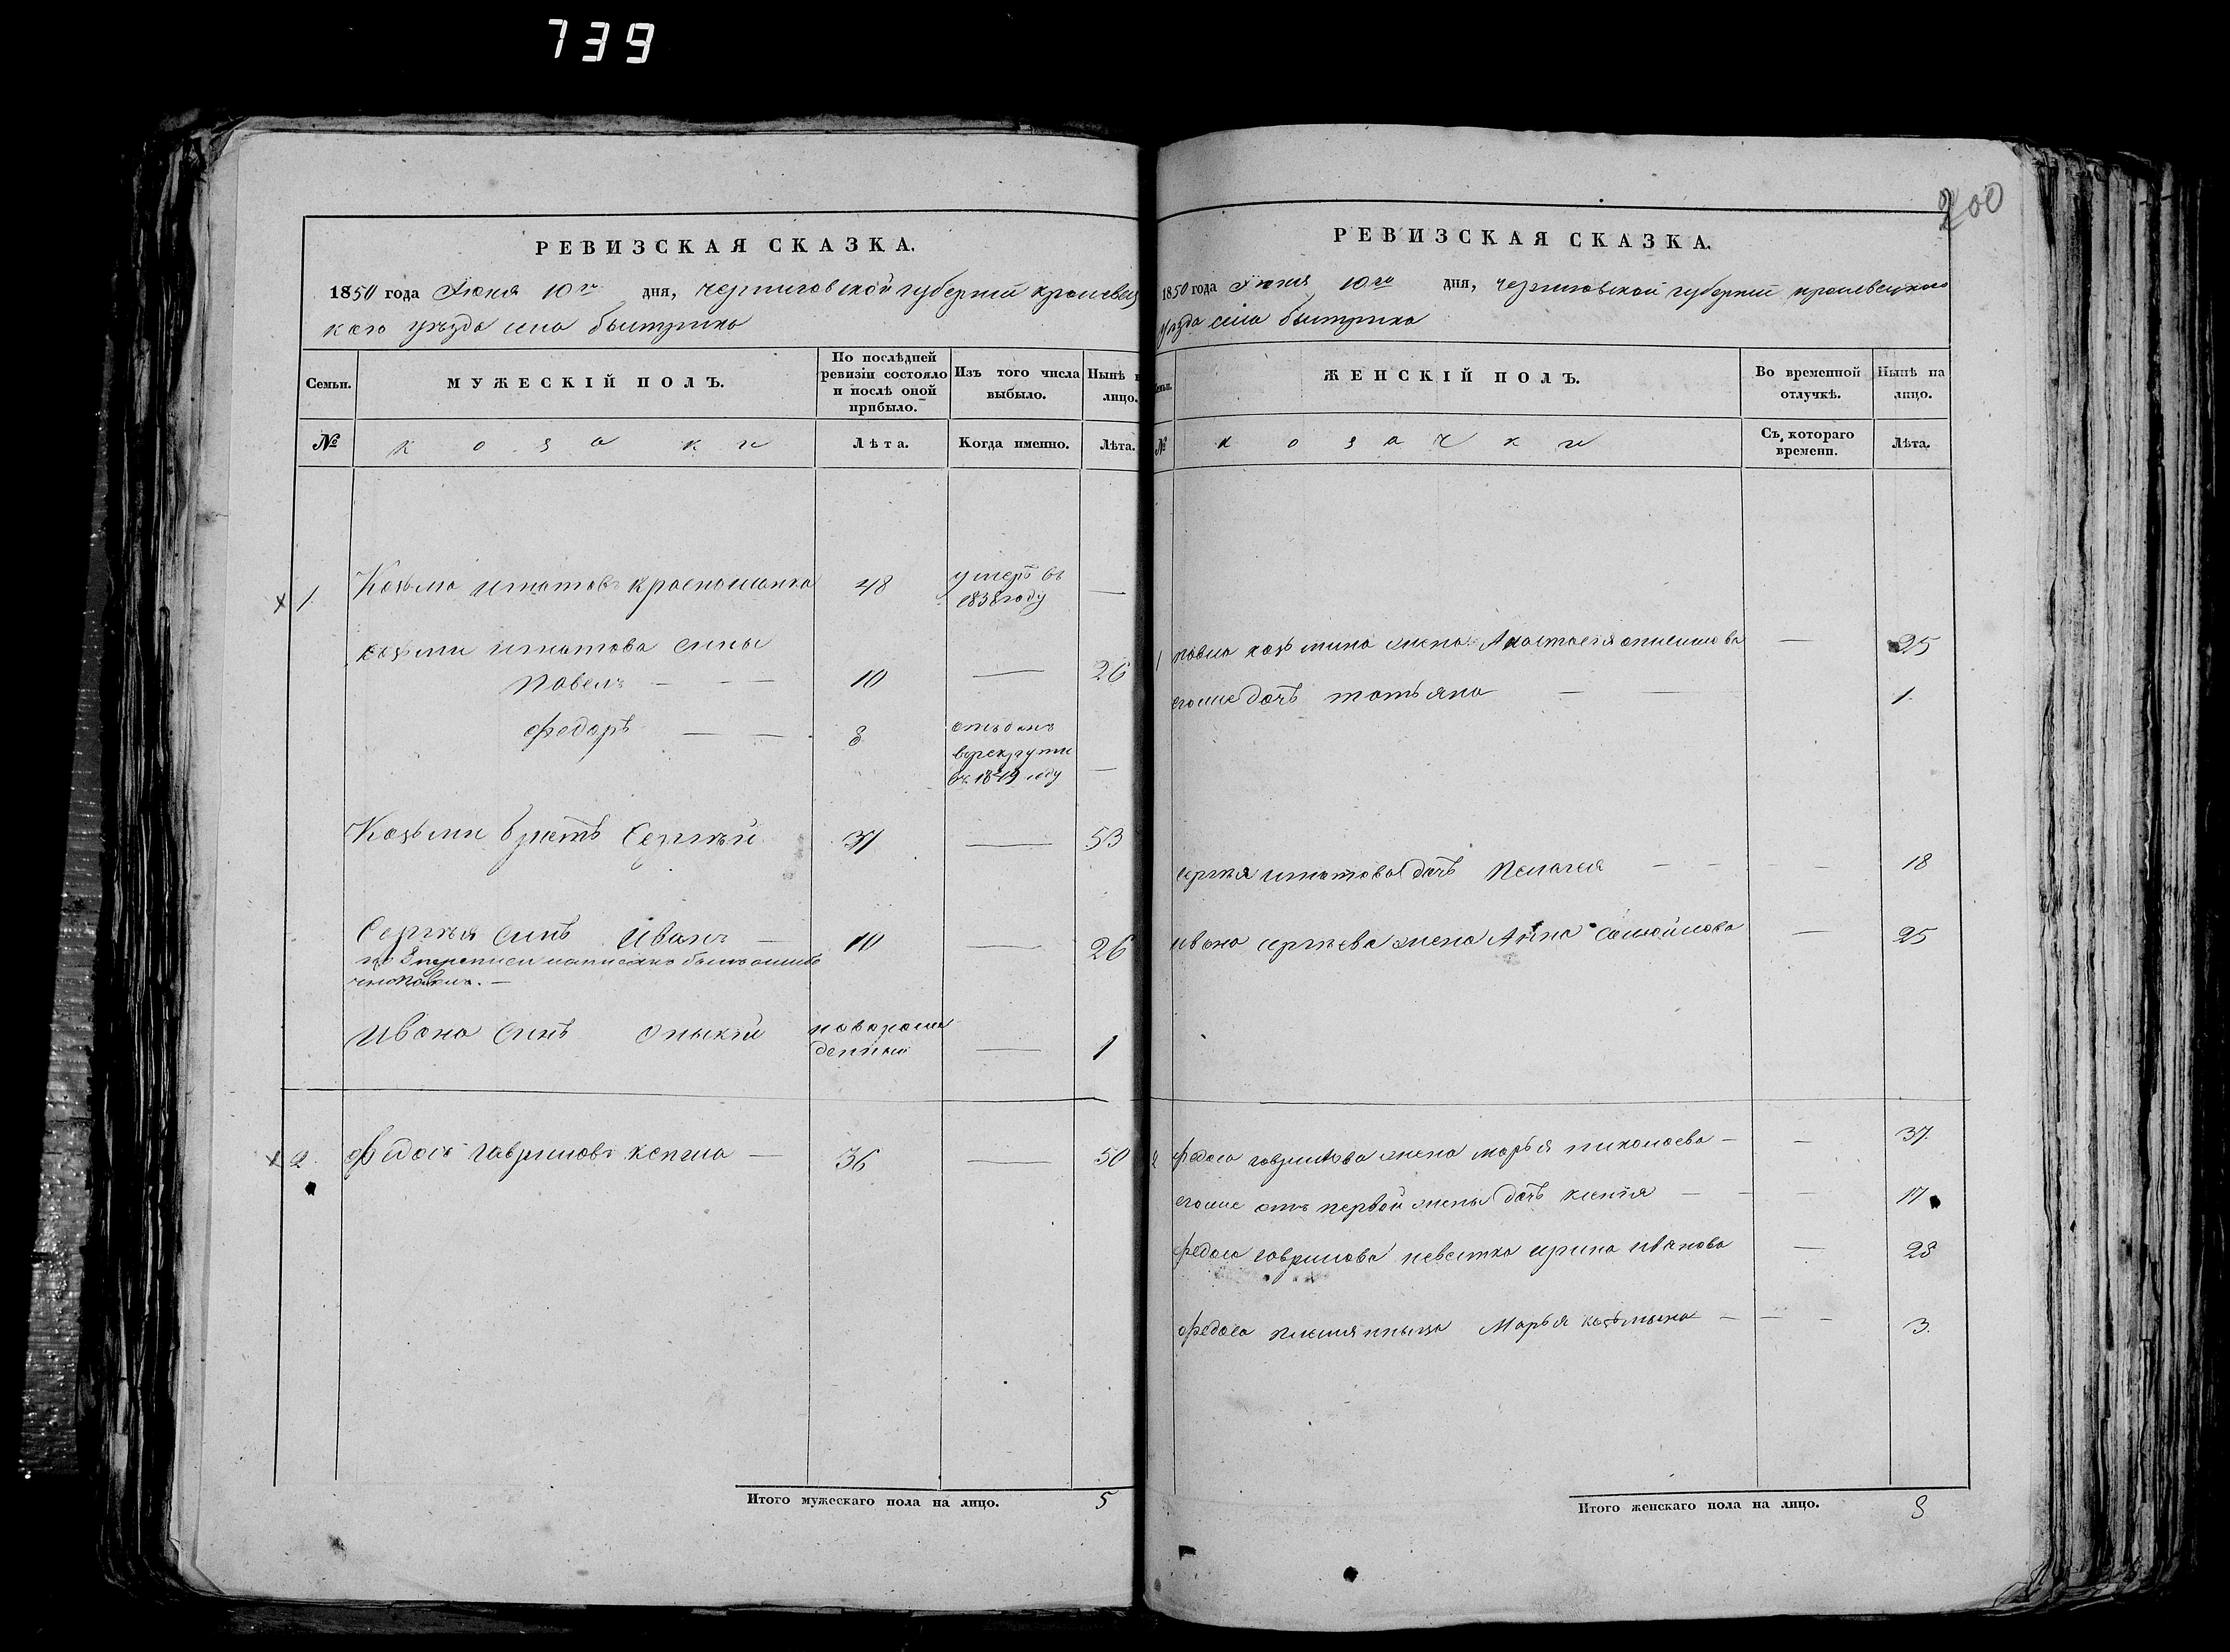 739
200
РЕВИЗСКАЯ СКАЗКА.
1850 года Июня 10го дня, Черниговской губернии кролевец
кого уезда села быстрика
Семьи.
МУЖЕСКІЙ ПОЛЪ.
По послѣдней ревизіи состояло и послѣ оной прибыло.
Изъ того числа выбыло.
Нынѣ на лицо.
№
козаки
Лѣта.
Когда именно.
Лѣта.
1. Козьма игнатовъ Красношапка 48 умеръ въ 1838 году —
козьми игнатова сины
Павелъ — — — 10 — 26
Федоръ — — 8 отданъ в рекруты въ 1849 году —
Козьми братъ Сергѣй 37 — 53
Сергѣя синъ Иванъ — 10 — 26
по 8 переписи написанъ былъ ошибо
чно Павелъ. —
Ивана синъ новорожденный — 1
2. Федосъ гавриловъ кепша — 36 — 50
Итого мужескаго пола на лицо. 5
РЕВИЗСКАЯ СКАЗКА.
1850 года Июня 10го дня, черниговской губернии кролевецкого
уезда села быстрика
Семьи.
ЖЕНСКІЙ ПОЛЪ.
Во временной отлучкѣ.
Нынѣ на лицо.
№
козачки
Съ котораго времени.
Лѣта.
1 павла козьмина жена Анастасія — 25
егоже дочь татьяна — 1.
сергѣя игнатова дочь Пелагея — — — 18
ивана сергѣева жена Анна самойлова — 25
2 Федоса гаврилова жена марья николаева — — 37.
егоже отъ первой жены дочь ксенія — — — 17
федоса гаврилова невестка ирина иванова — 28
Федоса племянныца Марья козьмына — — — 3.
Итого женскаго пола на лицо. 8